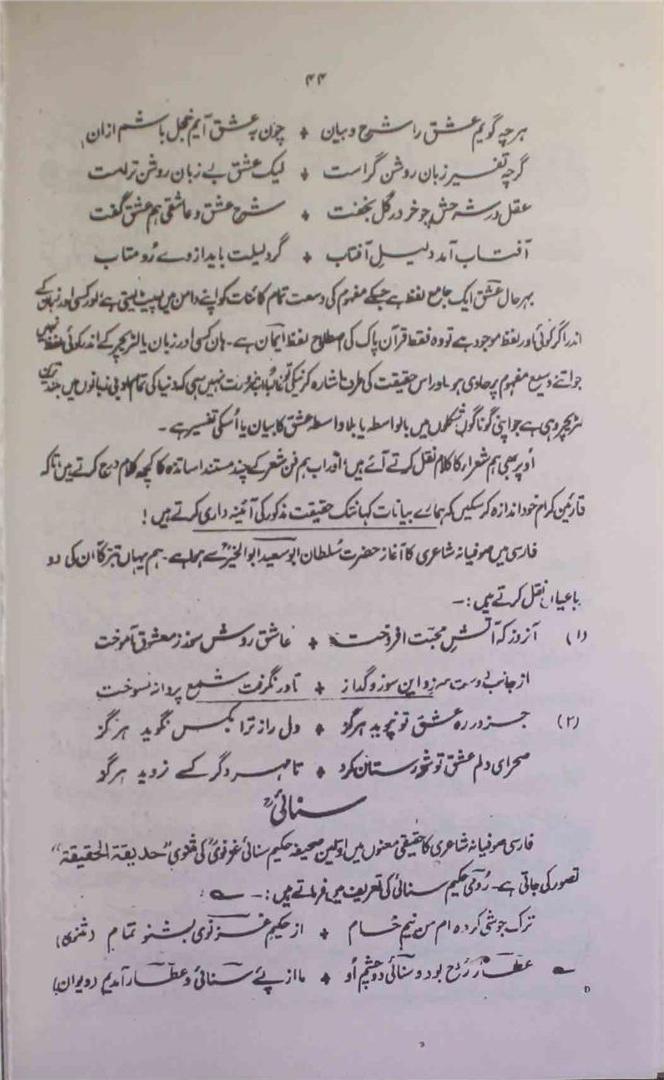 ۴۴
ہر چہ گویم عشق را شرح و بیان + چون بہ عشق آیم خجل باشم ازان
گرچہ تفسیر زبان روشن گر است + لیک عشق بے زبان روشن تر است
عقل در شرحش چو خر در گل بخفت + شرح عشق و عاشقی ہم عشق گفت
آفتاب آمد دلیلِ آفتاب + گر دلیلت باید از وے رُو متاب
بہر حال عشق ایک جامع لفظ ہے جسکے مفہوم کی وسعت تمام کائنات کو اپنے دامن میں لپیٹ لیتی ہے، اور کسی اور زبان کے
اندر اگر کوئی اور لفظ موجود ہے تو وہ فقط قرآن پاک کی مصطلح لفظ ایمان ہے۔ ہاں کسی اور زبان یا لٹریچر کے اندر کوئی لفظ نہیں
جو اتنے وسیع مفہوم پر حاوی ہو۔ اور اس حقیقت کی طرف اشارہ کرنیکی تو غالباً ضرورت نہیں رہی کہ دنیا کی تمام ادبی زبانوں میں بلند ترین
لٹریچر وہی ہے جو اپنی گوناگوں شکلوں میں بالواسطہ یا بلا واسطہ عشق کا بیان یا اُسکی تفسیر ہے۔
اُوپر بھی ہم شعراء کا کلام نقل کرتے آئے ہیں، اور اب ہم فن شعر کے چند مستند اساتذہ کا کچھ کلام درج کرتے ہیں تاکہ
قارئین کرام خود اندازہ کر سکیں کہ ہمارے بیانات کہانتک حقیقت مذکور کی آئینہ داری کرتے ہیں!
فارسی میں صوفیانہ شاعری کا آغاز حضرت سُلطان ابو سعید ابوالخیرؒ سے ہوا ہے۔ ہم یہاں تبرکاً ان کی دو
باعیاں نقل کرتے ہیں:۔
(۱) آنروز کہ آتشِ محبت افروخت + عاشق روشِ سوز ز معشوق آموخت
از جانب دوست سرزد این سوز و گداز + تا در نگرفت شمع پروانہ نسوخت
(۲) جز در رہِ عشق تو نپوید ہرگز + دل راز ترا بکس نگوید ہرگز
صحرای دلم عشق تو شورستان کرد + تا مہر دگر کسے نروید ہرگز
سنائیؒ
فارسی صوفیانہ شاعری کا حقیقی معنوں میں اولین صحیفہ حکیم سنائی غزنویؒ کی مثنوی "حدیقۃ الحقیقۃ"
تصور کی جاتی ہے۔ رُومیؒ حکیم سنائی کی تعریف میں فرماتے ہیں:۔
ترک جوشی کردہ ام من نیم خام + از حکیم غزنوی بشنو تمام (مثنوی)
عطار رُوح بود و سنائی دو چشم اُو + ما از پئے سنائی و عطار آمدیم (دیوان)